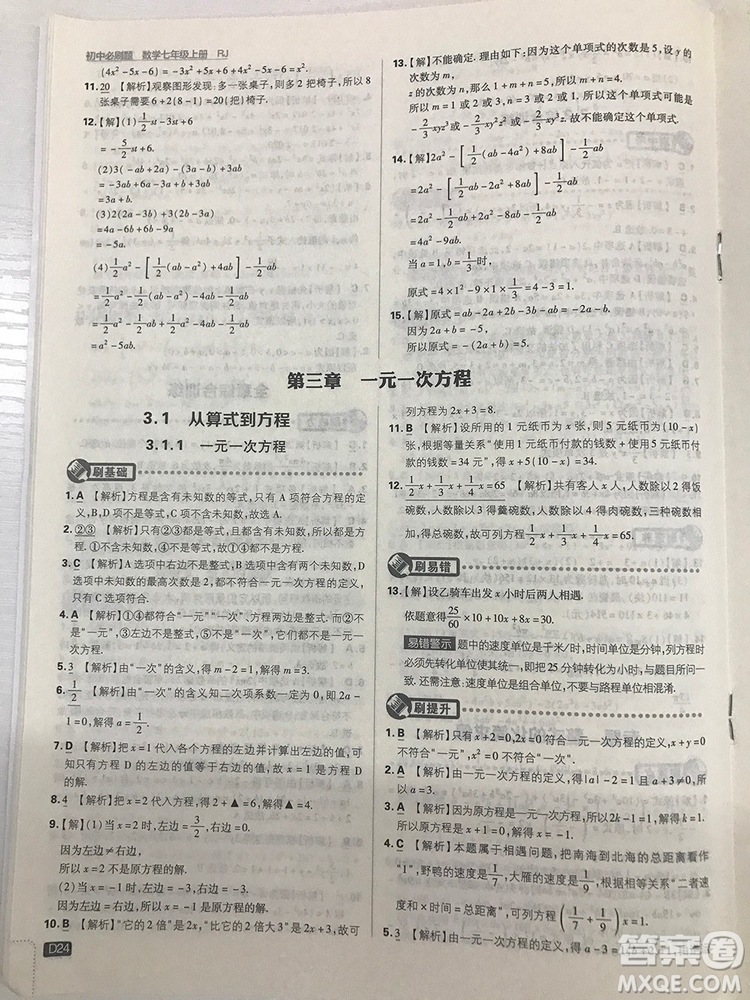 初中必刷题 数学七年级上册 RJ
(4x²-5x-6) = -3x²+5x+6-4x²+5x+6
= -7x²+10x+12.
11. 20 【解析】观察图形发现:多一张桌子,多2把椅子,所以8
张桌子需要6+2(8-1)=20(把)椅子.
12.【解】(1) 1/2 st-3st+6
= -5/2 st+6.
(2)3(-ab+2a)-(3a-b)+3ab
= -3ab+6a-3a+b+3ab
=3a+b.
(3)2(2a-3b)+3(2b-3a)
=4a-6b+6b-9a
= -5a.
(4) 1/2 a²-[1/2(ab-a²)+4ab]-1/2 ab
= 1/2 a²-1/2 ab+1/2 a²-4ab-1/2 ab
=a²-5ab.
13.【解】不能确定.因为这个单项式的次数是5,设y的
次数为m,
所以m=1或m=2或m=3.所以这个单项式可能是
14.【解】2a²-[1/2(ab-4a²)+8ab]-1/2 ab
=2a²-1/2 ab+2a²-8ab-1/2 ab
=4a²-9ab.
当a=1,b=1/3时,
原式=4×1²-9×1×1/3=4-3=1.
15.【解】原式=ab-2a+2b-3b-ab=-2a-b.
因为2a+b=-5,
所以原式=-(2a+b)=5.
第三章 一元一次方程
3.1 从算式到方程
3.1.1 一元一次方程
刷基础
1. A 【解析】方程是含有未知数的等式,只有A项符合方程的定
义,B、D项不含未知数,C项不是等式,故选A.
2. ②③ 【解析】②③都是等式,且都含有未知数,所以都是
方程.①不含未知数,④不是等式,故①④都不是方程.
3. C 【解析】A选项中右边不是整式,B选项中含有两个未知数,D
选项中未知数的最高次数是2,都不符合一元一次方程的定义,
只有C选项符合.
4. A 【解析】①④都符合“一元”“一次”、方程两边是整式.而②不
是“一次”,③左边不是整式,⑤不是“一元”,它们都不是一元一
次方程.
5. 3 【解析】由“一次”的含义,得m-2=1,解得m=3.
6. 1/2 【解析】由“一次”的含义知二次项系数一定为0,即2a-
1=0,解得a=1/2.
7. D 【解析】把x=1代入各个方程的左边并计算出结果,可
知只有方程D的左边的值等于右边的值,故x=1是方程D
的解.
8. 4 【解析】把x=2代入方程,得2+▲=6,解得▲=4.
9.【解】(1)当x=2时,左边=3/2,右边=3.
因为左边≠右边,
所以x=2不是原方程的解.
(2)当x=-1时,左边=-3,右边=-3.
因为左边=右边,
所以x=-1是原方程的解.
10. B 【解析】“它的2倍”是“2x”,“比它的2倍大3”是2x+3,故可
列方程为2x+3=8.
11. B 【解析】设所用的1元纸币为x张,则5元纸币为(10-x)
张.根据等量关系“1元纸币付款的钱数+5元纸币付款的
钱数=34元”,得x+5(10-x)=34.
12. 1/2 x+1/3 x+1/4 x=65 【解析】共有客人x人,人数除以2得饭
碗数,人数除以3得羹碗数,人数除以4得肉碗数,三种碗数
相加得总碗数,可得方程1/2 x+1/3 x+1/4 x=65.
刷易错
13.【解】设乙骑车出发x小时后两人相遇.
依题意得25/60×10+10x+8x=30.
易错警示 题中的速度单位是千米/时,时间单位是分钟,列方程时
必须先转化单位使其统一,即把25分钟转化为小时,与题目问法一
致.还需注意:速度单位是组合单位,不要与路程单位相混淆.
刷提升
1. B 【解析】只有x+2=0,2x=0符合一元一次方程的定义,x+y=0
不是“一元”,x²=0不是“一次”.
2. A 【解析】根据一元一次方程的定义,得|a|-2=1且a+3≠0,所
以a=3.
3. A 【解析】因为原方程是一元一次方程,所以2k-1=1,解得k=1.
原方程是x+1=0,解得x=-1.
4. C 【解析】本题属于相遇问题,把南海到北海的总距离看作
“1”,野鸭的速度是1/7,大雁的速度是1/9,根据相等关系“二者速
度和×时间=总距离”,可列方程为(1/7+1/9)x=1.
5. 3 【解析】由一元一次方程的定义,得a-3=
D24
答案圈
MXQE.COM